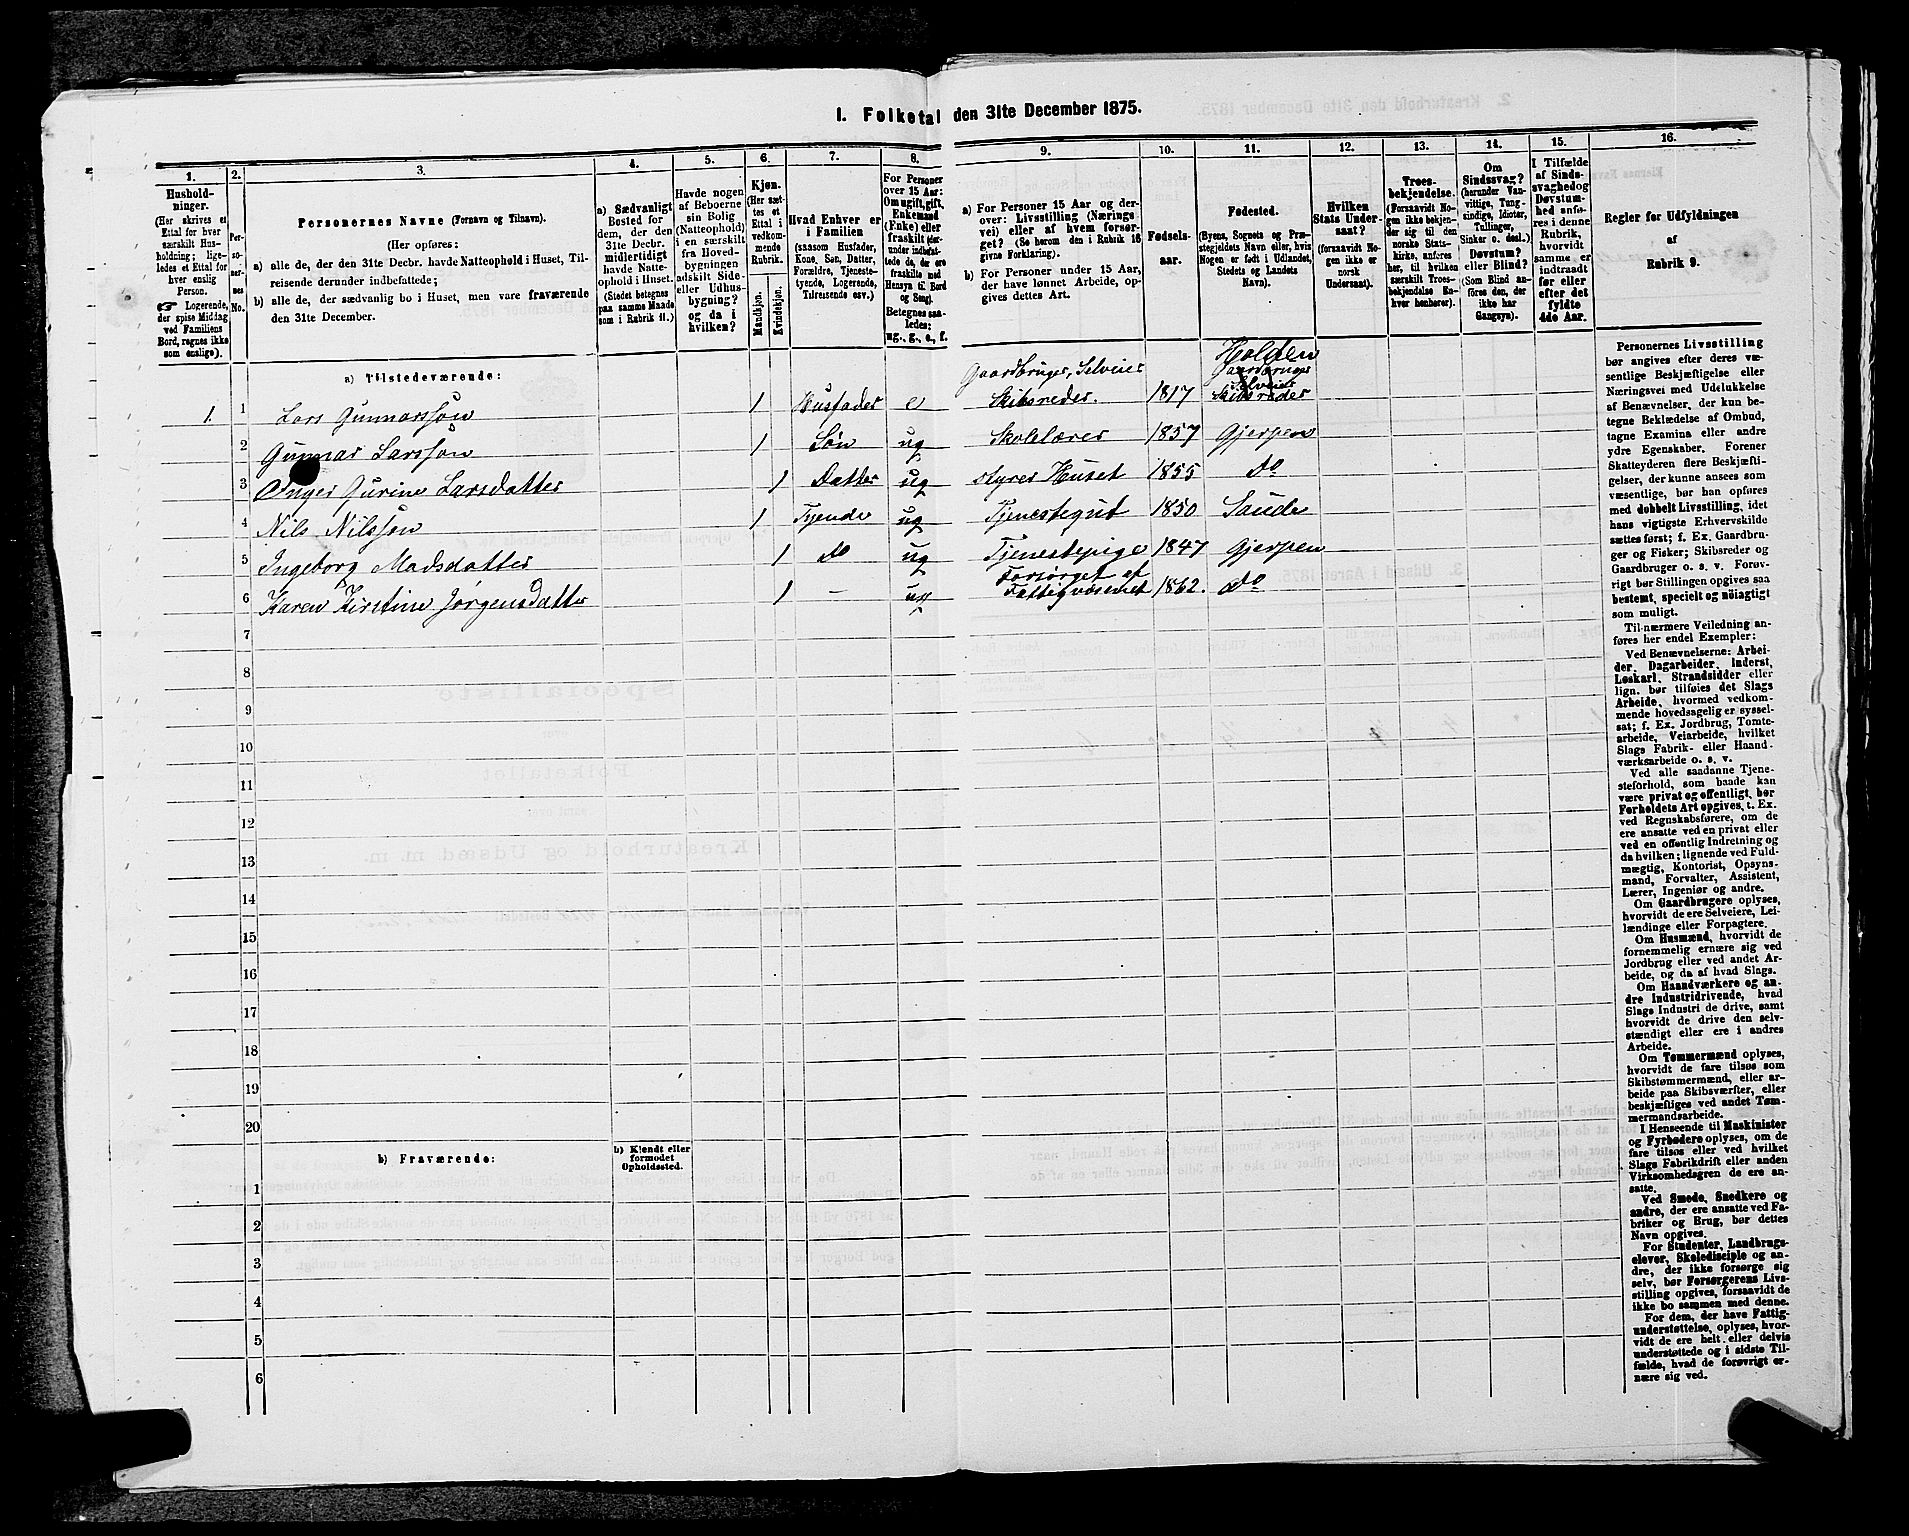 I. Folketal den 31te December 1875.
1.
Hushold-
ninger.
(Her skrives et
Ettal for hver
særskilt Hus-
holdning; lige-
ledes et Ettal for
hver enslig
Person.
☞ Logerende,
der spise Middag
ved Familiens
Bord, regnes ikke
som enslige).
2.
Per-
so-
ner-
nes
No.
3.
Personernes Navne (Fornavn og Tilnavn).
(Her opføres:
a) alle de, der den 31te Decbr. havde Natteophold i Huset, Til-
reisende derunder indbefattede;
b) alle de, der sædvanlig bo i Huset, men vare fraværende
den 31te December.
4.
a) Sædvanligt
Bosted for
dem, der den
31te Decbr.
midlertidigt
havde Natte-
ophold i Huset.
(Stedet betegnes
paa samme Maade
som i Rubrik 11.)
5.
Havde nogen
af Beboerne
sin Bolig
(Natteophold)
i en særskilt
fra Hoved-
bygningen
adskilt Side-
eller Udhus-
bygning?
og da i
hvilken?
6.
Kjøn.
(Her sæt-
tes et
Ettal i
vedkom-
mende
Rubrik.
Mandkjøn.
Kvindekjøn.
7.
Hvad Enhver er
i Familien
(saasom Husfader,
Kone, Søn, Datter,
Forældre, Tjeneste-
tyende, Logerende,
Tilreisende osv.)
8.
For Personer
over 15 Aar:
Om ugift, gift,
Enkemand
(Enke) eller
fraskilt (der-
under indbefat-
tede de, der ere
fraskilte med
Hensyn til Bord
og Seng).
Betegnes saa-
ledes:
ug., g., e., f.
9.
a) For Personer 15 Aar og der-
over: Livsstilling (Nærings-
vei) eller af hvem forsør-
get? (Se herom den i Rubrik 16
givne Forklaring).
b) For Personer under 15 Aar,
der have lønnet Arbeide, op-
gives dettes Art.
10.
Fødsels-
aar.
11.
Fødested.
(Byens, Sognets og Præ-
stegjeldets Navn eller, hvis
Nogen er født i Udlandet,
Stedets og Landets
Navn).
12.
Hvilken
Stats Under-
saat?
(forsaavidt No-
gen ikke er
norsk
Undersaat).
13.
Troes-
bekjendelse.
(Forsaavidt No-
gen ikke bekjen-
der sig til den
norske Stats-
kirke, anføres
her, til hvilken
særskilt Troes-
bekjendelse En-
hver henhører).
14.
Om
Sindssvag?
(herunder Van-
vittige, Tung-
sindige, Idioter,
Tullinger,
Sinker o. desl.)
Døvstum?
eller Blind?
(Som Blind an-
føres den, der
ikke har
Gangsyn).
15.
I Tilfælde
af Sinds-
svaghed og
Døvstum-
hed anfø-
res i denne
Rubrik,
hvorvidt
samme er
indtraadt
før eller
efter det
fyldte
4de Aar.
16.
Regler for Udfyldningen
af
Rubrik 9.
a) Tilstedeværende:
1. 1 Lars Gunnarssøn 1 Husfader e Gaardbruger, Selveier Skibsreder. 1817 Holden
Gaardbruger
Selveier
Skibsreder
2 Gunnar Larssøn 1 Søn ug Skolelærer 1857 Gjerpen
3 Inger Gurine Larsdatter 1 Datter ug styrer Huset 1855 do
4 Nils Nilssøn 1 Tyende ug Tjenestegut 1850 Saude
5 Ingeborg Madsdatter 1 do ug Tjenestepige 1847 Gjerpen
6 Karen Kirstine Jørgensdatter 1 – ug Forsørget af Fattigvæsenet 1862. do
7
8
9
10
11
12
13
14
15
16
17
18
19
20
b) Fraværende:
b) Kjendt eller
formodet
Opholdssted.
1
2
3
4
5
6
Personernes Livsstilling
bør angives efter deres væ-
sentlige Beskjæftigelse eller
Næringsvei med Udelukkelse
af Benævnelser, der kun be-
tegne Beklædelse af Ombud,
tagne Examina eller andre
ydre Egenskaber. Forener
Skatteyderen flere Beskjæfti-
gelser, der kunne ansees som
væsentlige, bør han opføres
med dobbelt Livsstilling, idet
hans vigtigste Erhvervskilde
sættes først; f. Ex. Gaardbru-
ger og Fisker; Skibsreder og
Gaardbruger o. s. v. Forøv-
rigt bør Stillingen opgives saa
bestemt, specielt og nøiagtigt
som muligt.
Til nærmere Veiledning an-
føres her endel Exempler:
Ved Benævnelserne: Arbei-
der, Dagarbeider, Inderst,
Løskarl, Strandsidder eller
lign. bør tilføies det Slags
Arbeide, hvormed vedkom-
mende hovedsagelig er syssel-
sat; f. Ex. Jordbrug, Tomte-
arbeide, Veiarbeide, hvilket
Slags Fabrik- eller Haand-
værksarbeide o. s. v.
Ved alle saadanne Tjene-
steforhold, som baade kan
være privat og offentligt, bør
Forholdets Art opgives, t. Ex.
ved Regnskabsførere, om de
ere ansatte ved en privat eller
ved en offentlig Indretning og
da hvilken; lignende ved Fuld-
mægtig, Kontorist, Opsyns-
mand, Forvalter, Assistent,
Lærer, Ingeniør og andre.
Om Gaardbrugere oplyses,
hvorvidt de ere Selveiere, Lei-
lændinge eller Forpagtere.
Om Husmænd, hvorvidt de
fornemmelig ernære sig ved
Jordbrug eller ved andet Ar-
beide, og da af hvad Slags.
Om Haandværkere og an-
dre Industridrivende, hvad
Slags Industri de drive, samt
hvorvidt de drive den selv-
stændigt eller ere i andres
Arbeide.
Om Tømmermænd oplyses,
hvorvidt de fare tilsøs som
Skibstømmermænd, eller ar-
beide paa Skibsværfter, eller
beskjæftiges ved andet Tøm-
mermandsarbeide.
I Henseende til Maskinister
og Fyrbødere oplyses, om de
fare tilsøs eller ved hvilket
Slags Fabrikdrift eller anden
Virksomhedsgren de ere an-
satte.
Ved Smede, Snedkere og
andre, der ere ansatte ved Fa-
briker og Brug, bør dettes
Navn opgives.
For Studenter, Landbrugs-
elever, Skoledisciple og an-
dre, der ikke forsørge sig
selv, bør Forsørgerens Livs-
stilling opgives, forsaavidt de
ikke bo sammen med denne.
For dem, der have Fattig-
understøttelse, oplyses, hvor-
vidt de ere helt eller delvis
understøttede og i sidste Til-
fælde, hvad de forøvrigt er-
nære sig ved.